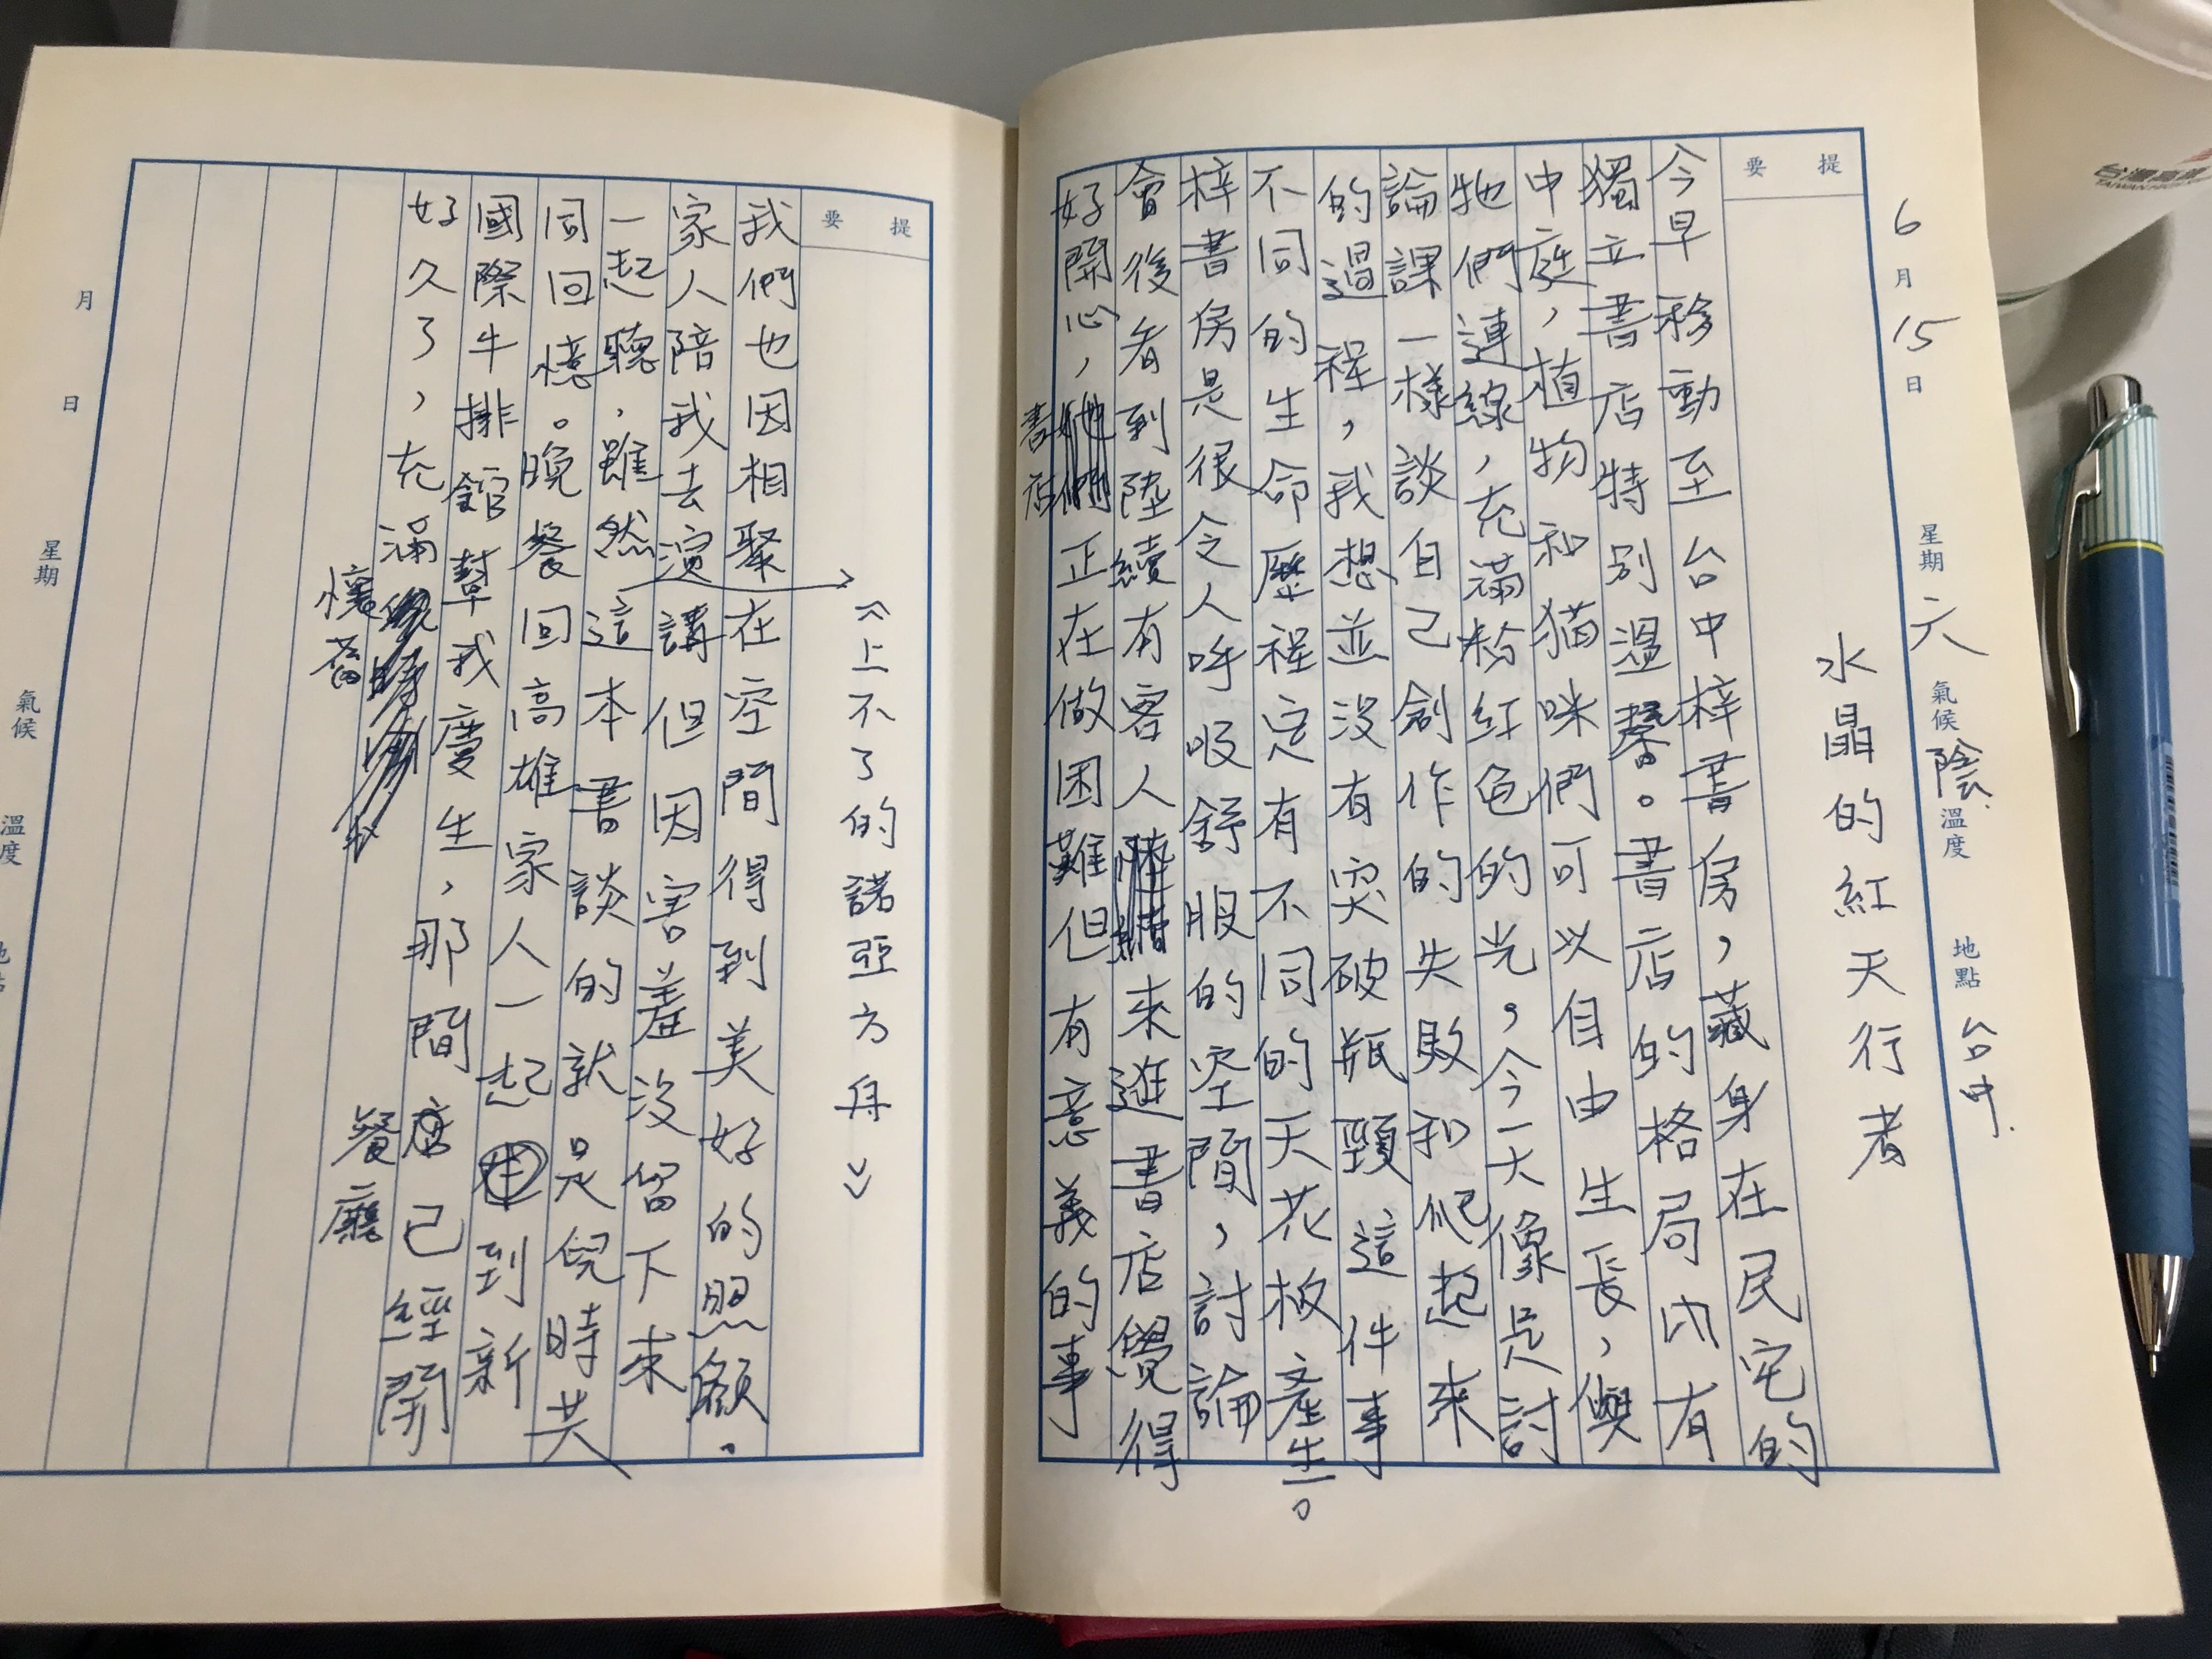 6月15日 星期六 氣候陰 溫度 地點台中
水晶的紅天行者
提要
今早移動至台中梓書房，藏身在民宅的
獨立書店特別溫馨。書店的格局內有
中庭，植物和貓咪們可以自由生長，與
牠們連線，充滿粉紅色的光。今天像是討
論課一樣談自己創作的失敗和爬起來
的過程，我想並沒有突破瓶頸這件事
不同的生命歷程定有不同的天花板產生。
梓書房是很令人呼吸舒服的空間，討論
會後看到陸續有客人來逛書店覺得
好開心，書店正在做困難但有意義的事
提要
《上不了的諾亞方舟》
我們也因相聚在空間得到美好的照顧。
家人陪我去演講但因害羞沒留下來
一起聽，雖然這本書談的就是兒時共
同回憶。晚餐回高雄家人一起到新
國際牛排館幫我慶生，那間店已經開
好久了，充滿懷舊
餐廳
月 日 星期 氣候 溫度
台灣高鐵
TAIWAN HIGH